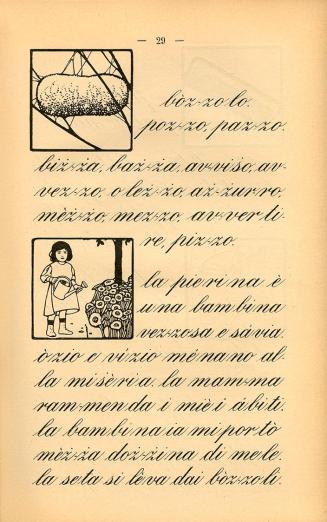 — 29 —
bòz-zo lo.
poz-zo, paz-zo.
biż-ża, baż-ża, av-viṡo, av-
vez-zo, o leż-żo, aż-żur-ro,
mèż-żo, mez-zo, av-ver ti
re, piz-zo.
la pie ri na è
u na bam bi na
vez-zosa e sávia.
òzio e vízio mè na no al-
la miṡèria. la mam-ma
ram-men da i mièi ábiti.
la bam bi na ia mi por tò
mèż-ża doż-żina di me le.
la seta si lèva dai bòz-zo li.